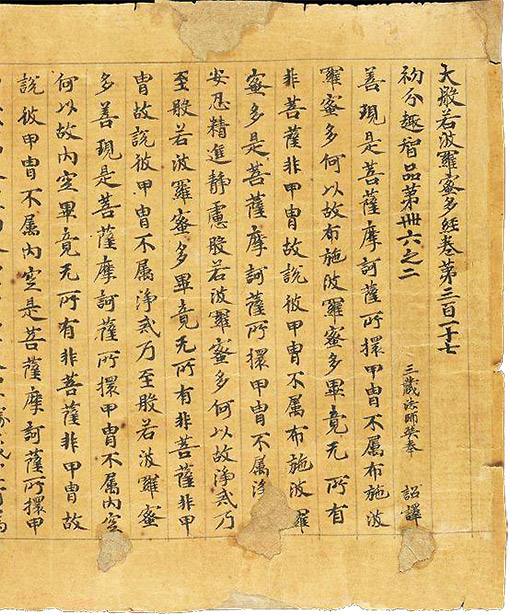 大般若波羅蜜多經卷第三百一十七
初分趣智品第卌六之二 三藏法師奘奉 詔譯
善現是菩薩摩訶薩所擐甲冑不属布施波
羅蜜多何以故布施波羅蜜多畢竟无所有
非菩薩非甲冑故說彼甲冑不属布施波羅
蜜多是菩薩摩訶薩所擐甲冑不属淨
安忍精進靜慮般若波羅蜜多何以故淨戒乃
至般若波羅蜜多畢竟无所有非菩薩非甲
冑故說彼甲冑不属淨戒乃至般若波羅蜜
多善現是菩薩摩訶薩所擐甲冑不属內空
何以故內空畢竟无所有非菩薩非甲冑故
說彼甲冑不属內空是菩薩摩訶薩所擐甲